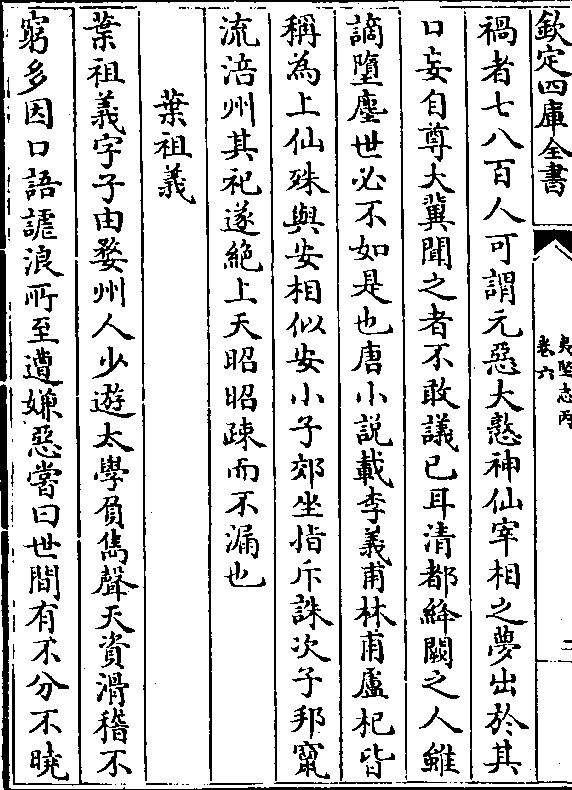 欽定四庫全書
夷堅志丙
卷六
二
禍者七八百人可謂元惡大憝神仙宰相之夢出於其
口妄自尊大冀聞之者不敢議已耳清都絳闕之人雖
謫墮塵世必不如是也唐小説載李義甫林甫盧杞皆
稱為上仙殊與安相似安小子郊坐指斥誅次子邦竄
流涪州其祀遂絶上天昭昭疎而不漏也
葉祖義
葉祖義字子由婺州人少遊太學負雋聲天資滑稽不
窮多因口語謔浪所至遭嫌惡嘗曰世間有不分不曉